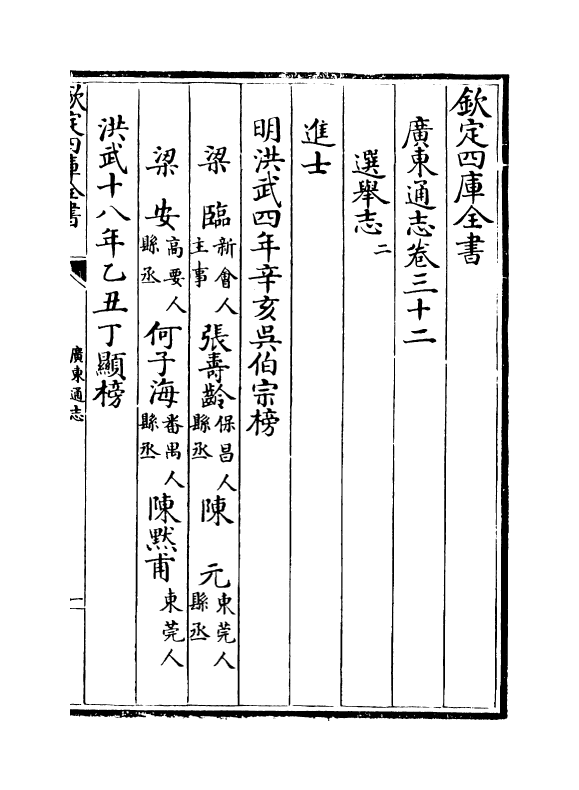 欽定四庫全書
廣東通志卷三十二
選舉志二
進士
明洪武四年辛亥吳伯宗榜
梁臨新會人主事 張壽齡保昌人縣丞 陳元東莞人縣丞
梁安高要人縣丞 何子海番禺人縣丞 陳黙甫東莞人
洪武十八年乙丑丁顯榜
欽定四庫全書 廣東通志 一